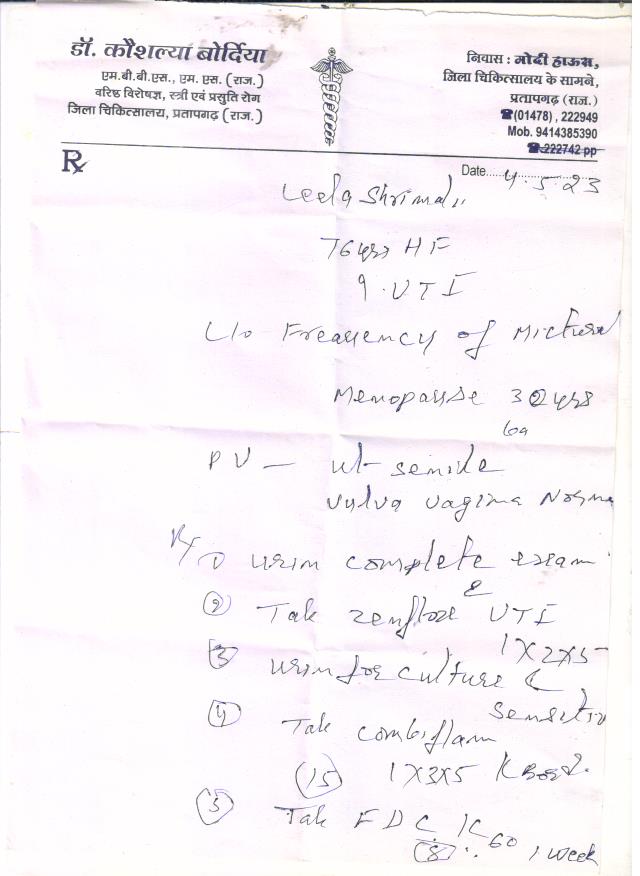 डॉ. कौशल्या बोर्दिया
एम.बी.बी.एस., एम. एस. (राज.)
वरिष्ठ विशेषज्ञ, स्त्री एवं प्रसुति रोग
जिला चिकित्सालय, प्रतापगढ़ (राज.)
निवास : मोदी हाऊस,
जिला चिकित्सालय के सामने,
प्रतापगढ़ (राज.)
☎(01478) , 222949
Mob. 9414385390
☎ 222742 pp
Rx
Date 4.5.23
Leela
76 yrs HF
UTI
C/o Frequency of
Menopause yrs
PV — ut- senile
vulva vagina
Rx ① urin complete exam
② Tab UTI
1X2X5
③ urin for culture &
④ Tab combiflam
(15) 1X3X5
⑤ Tab
(8) 1 week